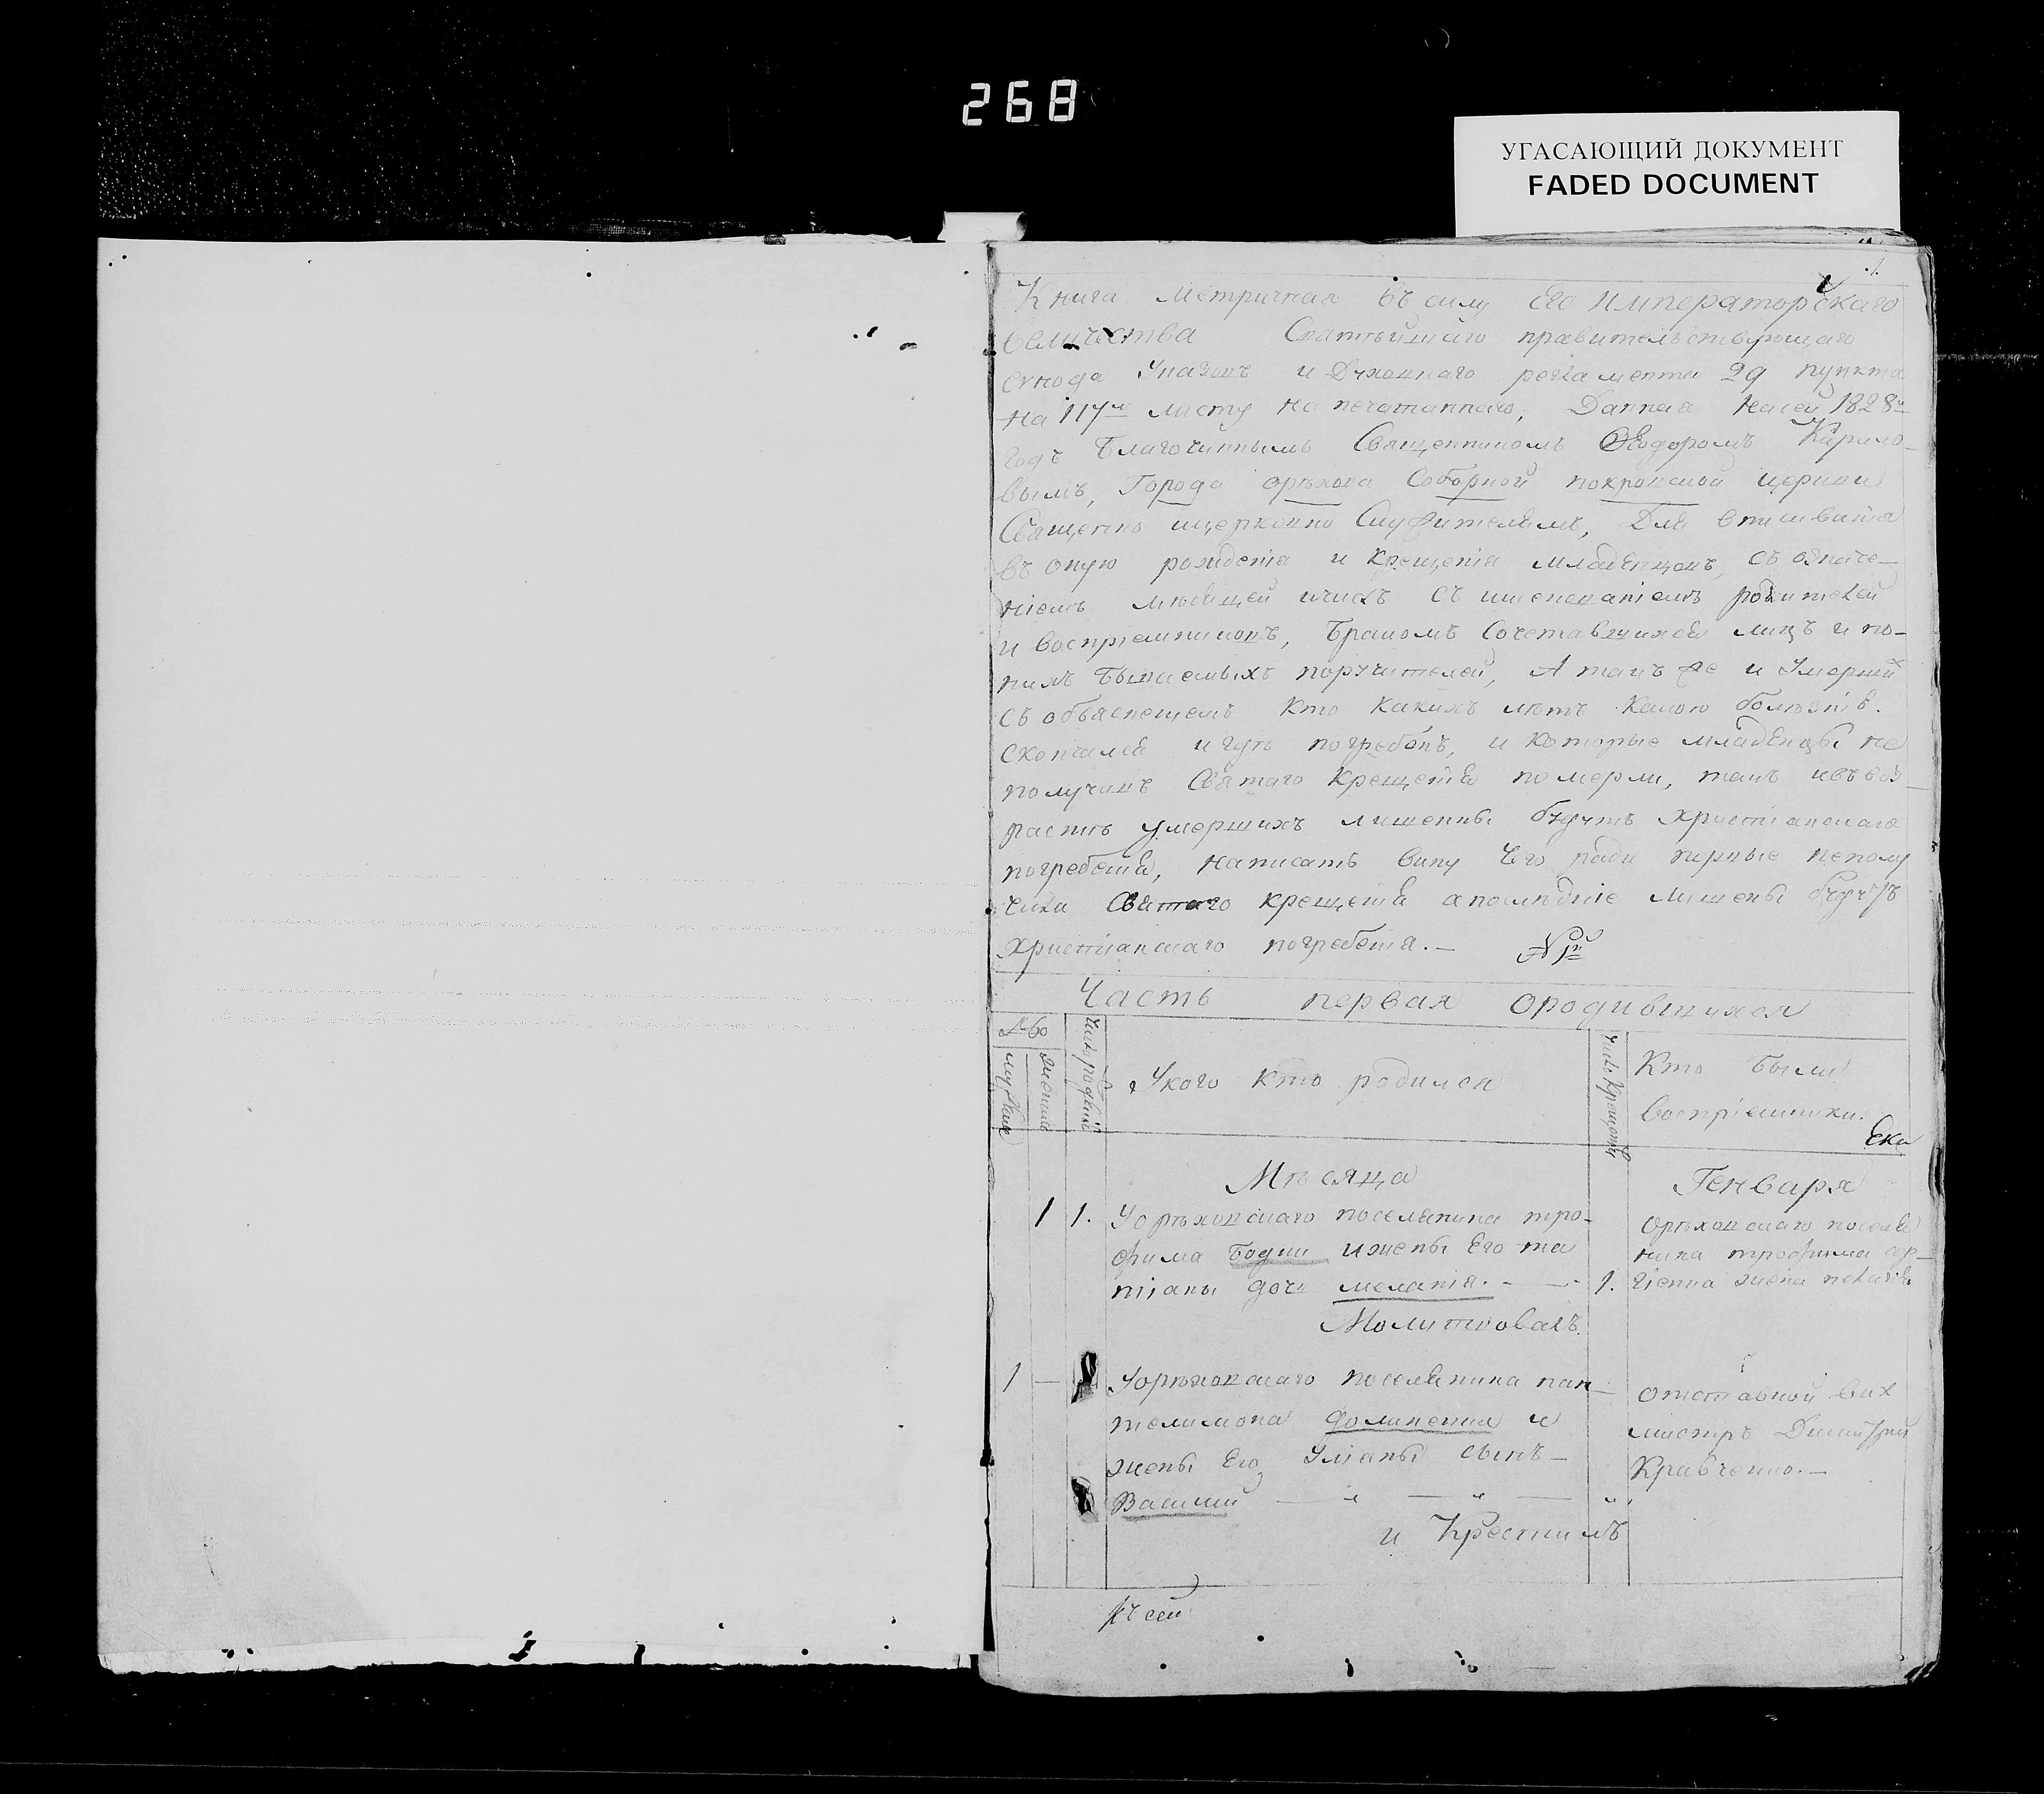 268
УГАСАЮЩИЙ ДОКУМЕНТ
FADED DOCUMENT
1.
Книга метричная въ силу Его императорскаго
величества Святѣйшаго правительствующаго
сѵнода Указовъ и Духовнаго регламента 29 пункта
на 117м листу на печатаннаго, Данная на сей 1828й
годъ Благочиннымъ Священникомъ Ѳеодоромъ Кирило-
вымъ, Города орѣхова Соборной покровской церкви
Священно ицерковно Служителямъ, Для вписыванія
въ оную рожденія и крещенія младенцовъ, съ означе-
ніемъ мѣсяцей ичислъ съ имянованіемъ родителей
и воспріемниковъ, Бракомъ Сочетавшихся лицъ и по-
нихъ Бываемыхъ поручителей, А такъ же и Умершихъ
съ объясненіемъ кто какихъ лѣтъ какою болѣзнію
скончался игдѣ погребенъ, и которые младенцы не
получивъ Святаго крещенія померли, такъ ивъ воз-
растѣ умершихъ лишенны будутъ христіанскаго
погребенія, написать вину чего ради первые неполу
чили Святаго крещенія апослѣдніе лишены будутъ
христіанскаго погребенія.—
Часть первая ородившихся
число рожденій
Укого кто родился
Кто были
воспріемники.
Ека
Мѣсяца Генваря
1 1. Уорѣховскаго поселянина тро-
фима Бодни ижены Его та
тіаны дочь меланія. — 1.
Молитвовалъ
орѣховскаго поселя
нина трофима сер-
гіенка жена
1 — Уорѣховскаго поселянина пан-
телимона и
жены Его Уліаны сынъ—
Василий
и Крестилъ
отставной вах
мистръ Димитрий
Кравченко.—
къ сей